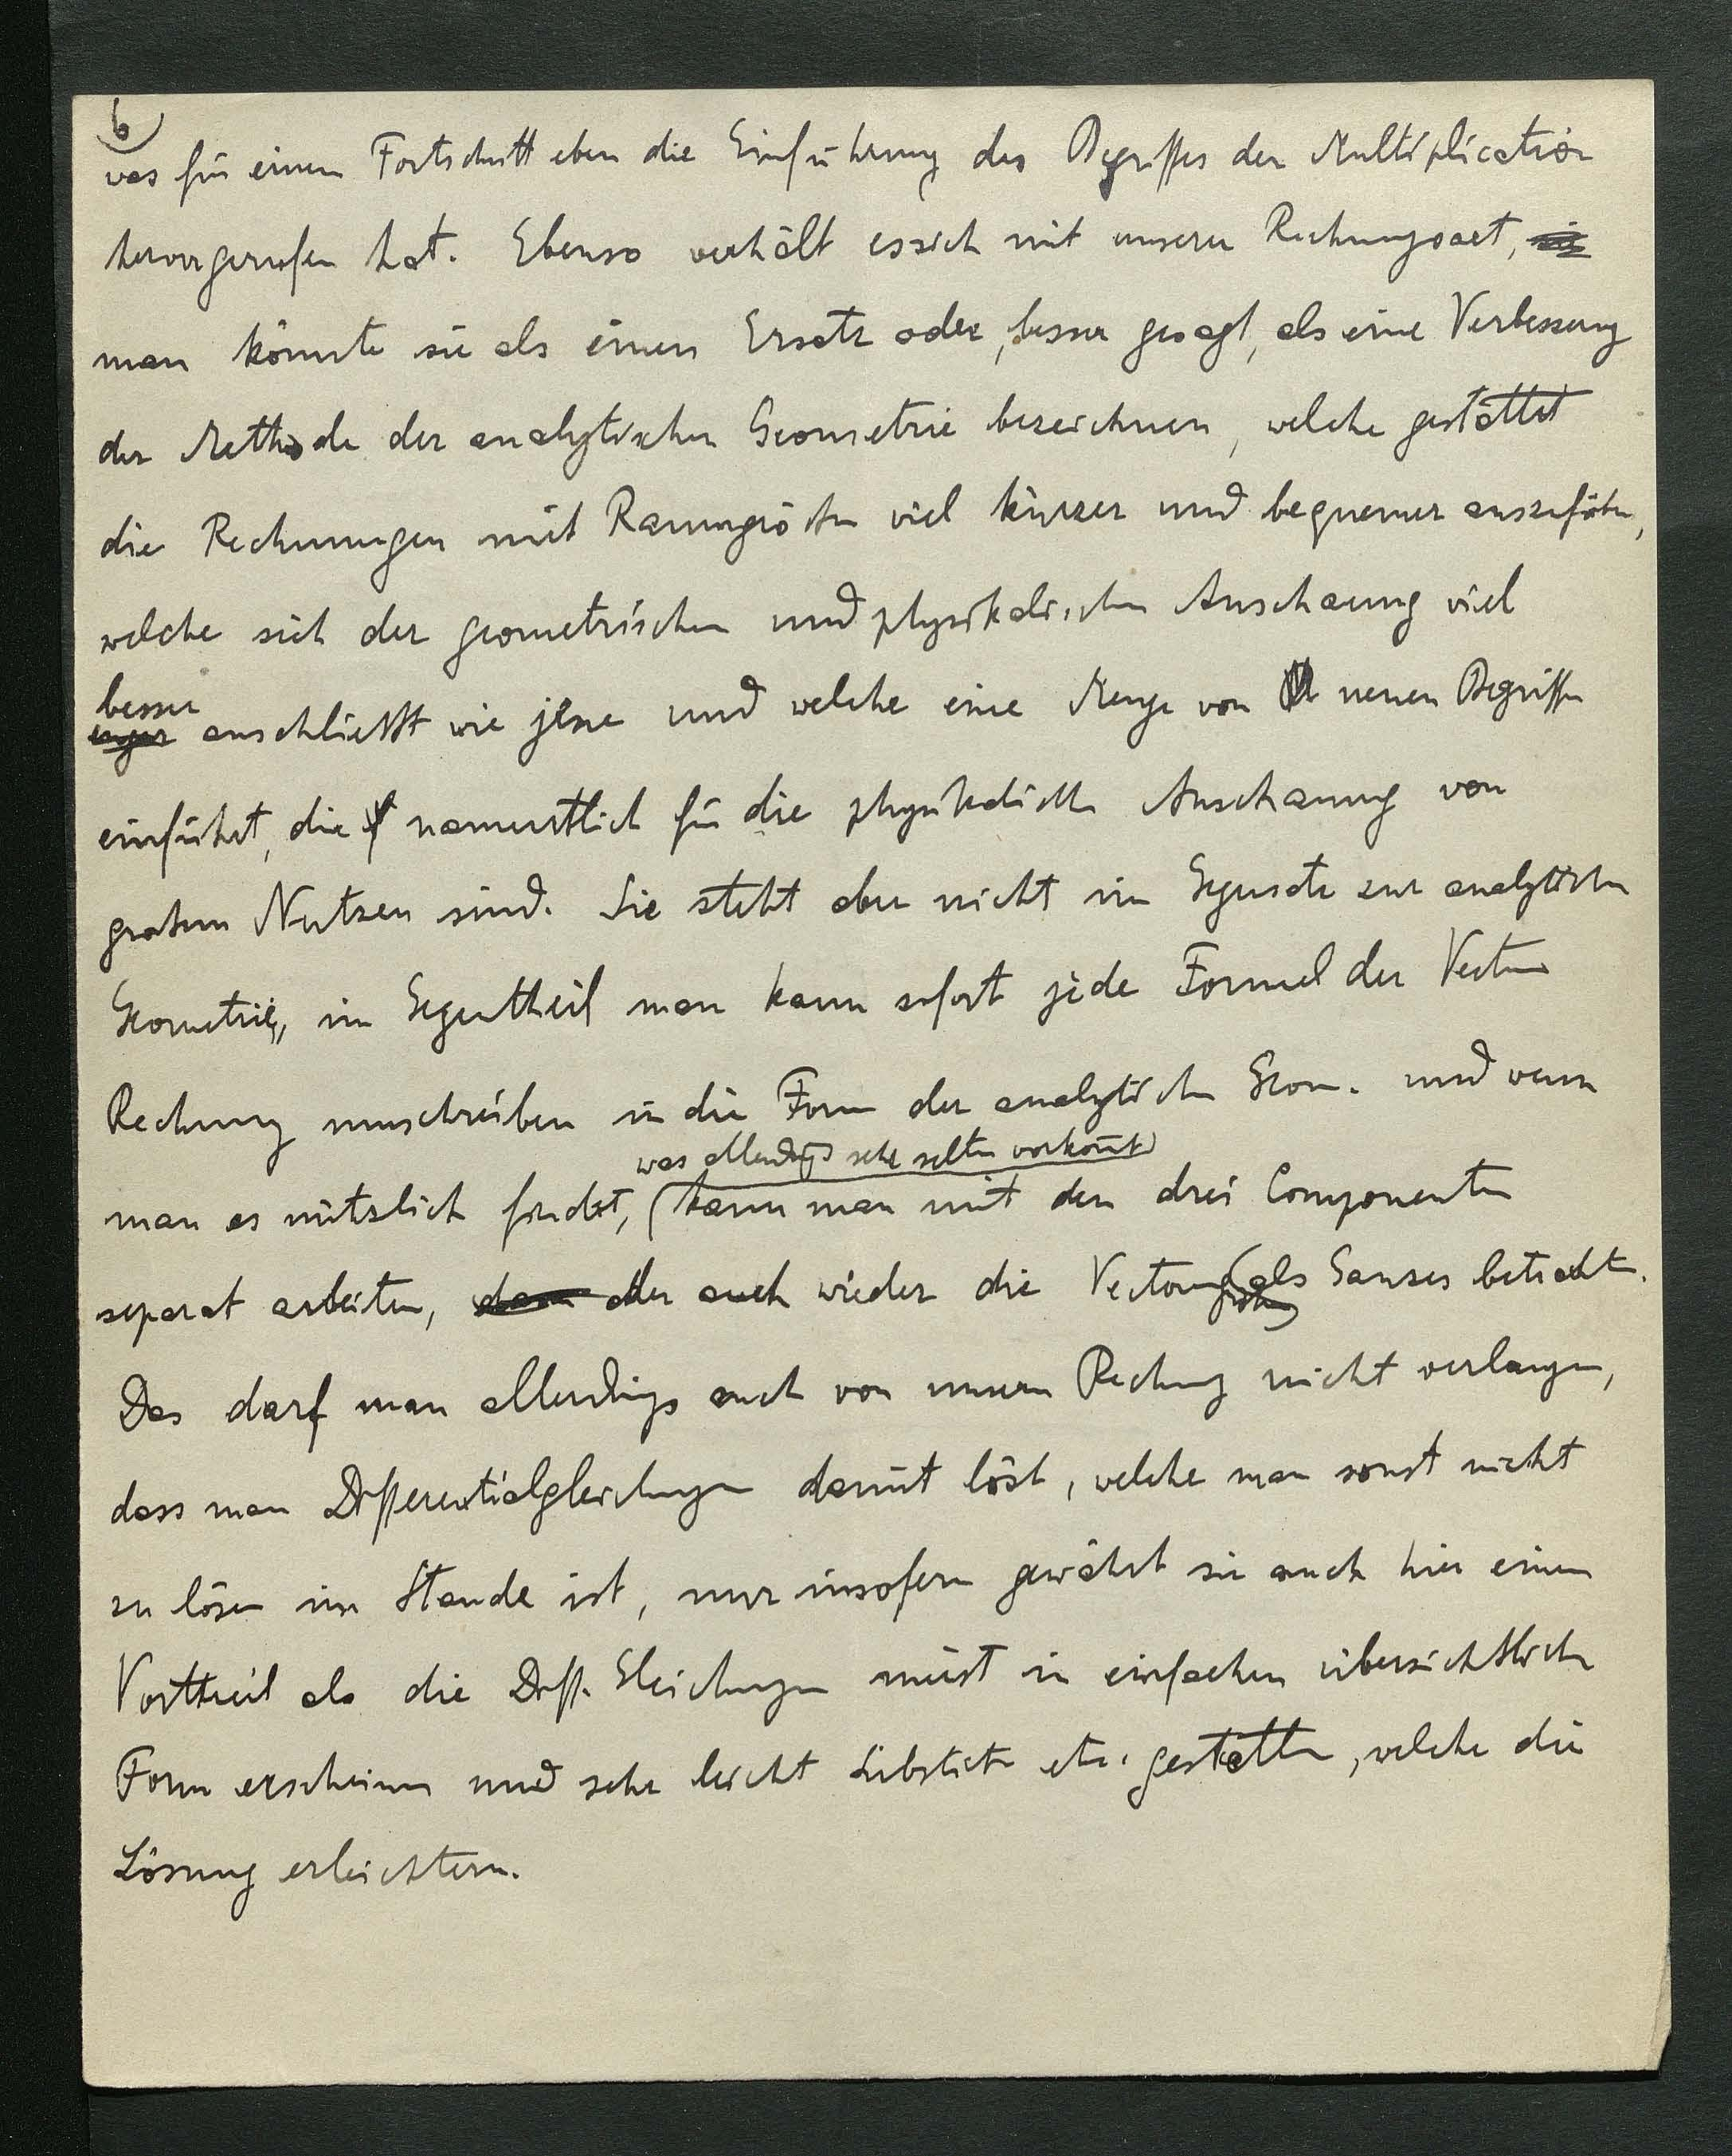 6)
was für einen Fortschritt eben die Einführung des Begriffes der Multiplication
hervorgerufen hat. Ebenso verhält es sich mit unserer Rechnungsart,
man könnte sie als einen Ersatz oder, besser gesagt, als eine Verbesserung
der Methode der analytischen Geometrie bezeichnen, welche gestattet
die Rechnungen mit Raumgrößen viel kürzer und bequemer auszuführen,
welche sich der geometrischen und physikalischen Anschauung viel
besser
enger anschließt wie jene und welche eine Menge von neuen Begriffen
einführt, die namentlich für die physikalische Anschauung von
großem Nutzen sind. Sie steht aber nicht im Gegensatz zur analytischen
Geometrie, im Gegentheil man kann sofort jede Formel der Vector
Rechnung umschreiben in die Form der analytischen Geom. und wenn
was allerdings sehr selten vorkommt
man es nützlich findet, (kann man mit den drei Componenten
separat arbeiten, dann oder auch wieder die Vectorgrößen als Ganzes betrachten.
Das darf man allerdings auch von unserer Rechnung nicht verlangen,
dass man Differentialgleichungen damit löst, welche man sonst nicht
zu lösen im Stande ist, nur insofern gewährt sie auch hier einen
Vortheil als die Diff. Gleichungen meist in einfachen übersichtlichen
Form erscheinen und sehr leicht Substit. etc. gestatten, welche die
Lösung erleichtern.